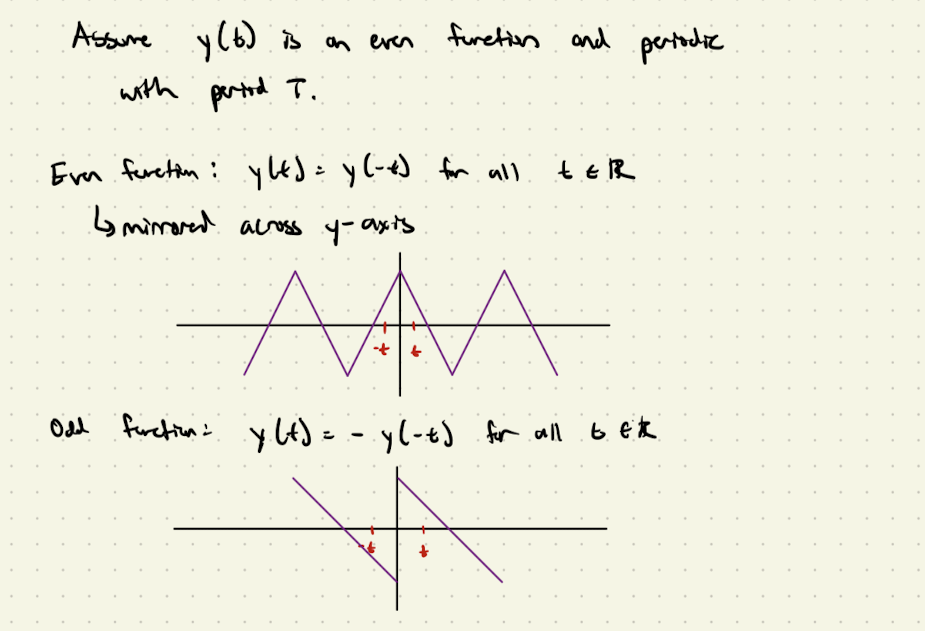 Assume y(t) is an even function and periodic
with period T.
Even function: y(t) = y(-t) for all t ∈ ℝ
↳ mirrored across y-axis
-t t
Odd function: y(t) = - y(-t) for all t ∈ ℝ
-t t